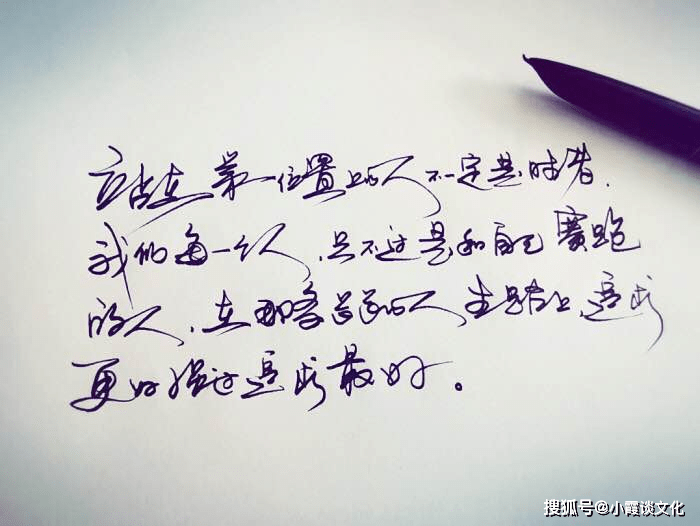 站在第一位置上的人不一定是时者.
我们每一个人,只不过是和自己赛跑
的人,在那条长长的人生路上,追求
更好强过追求最好。
搜狐号@小霞谈文化